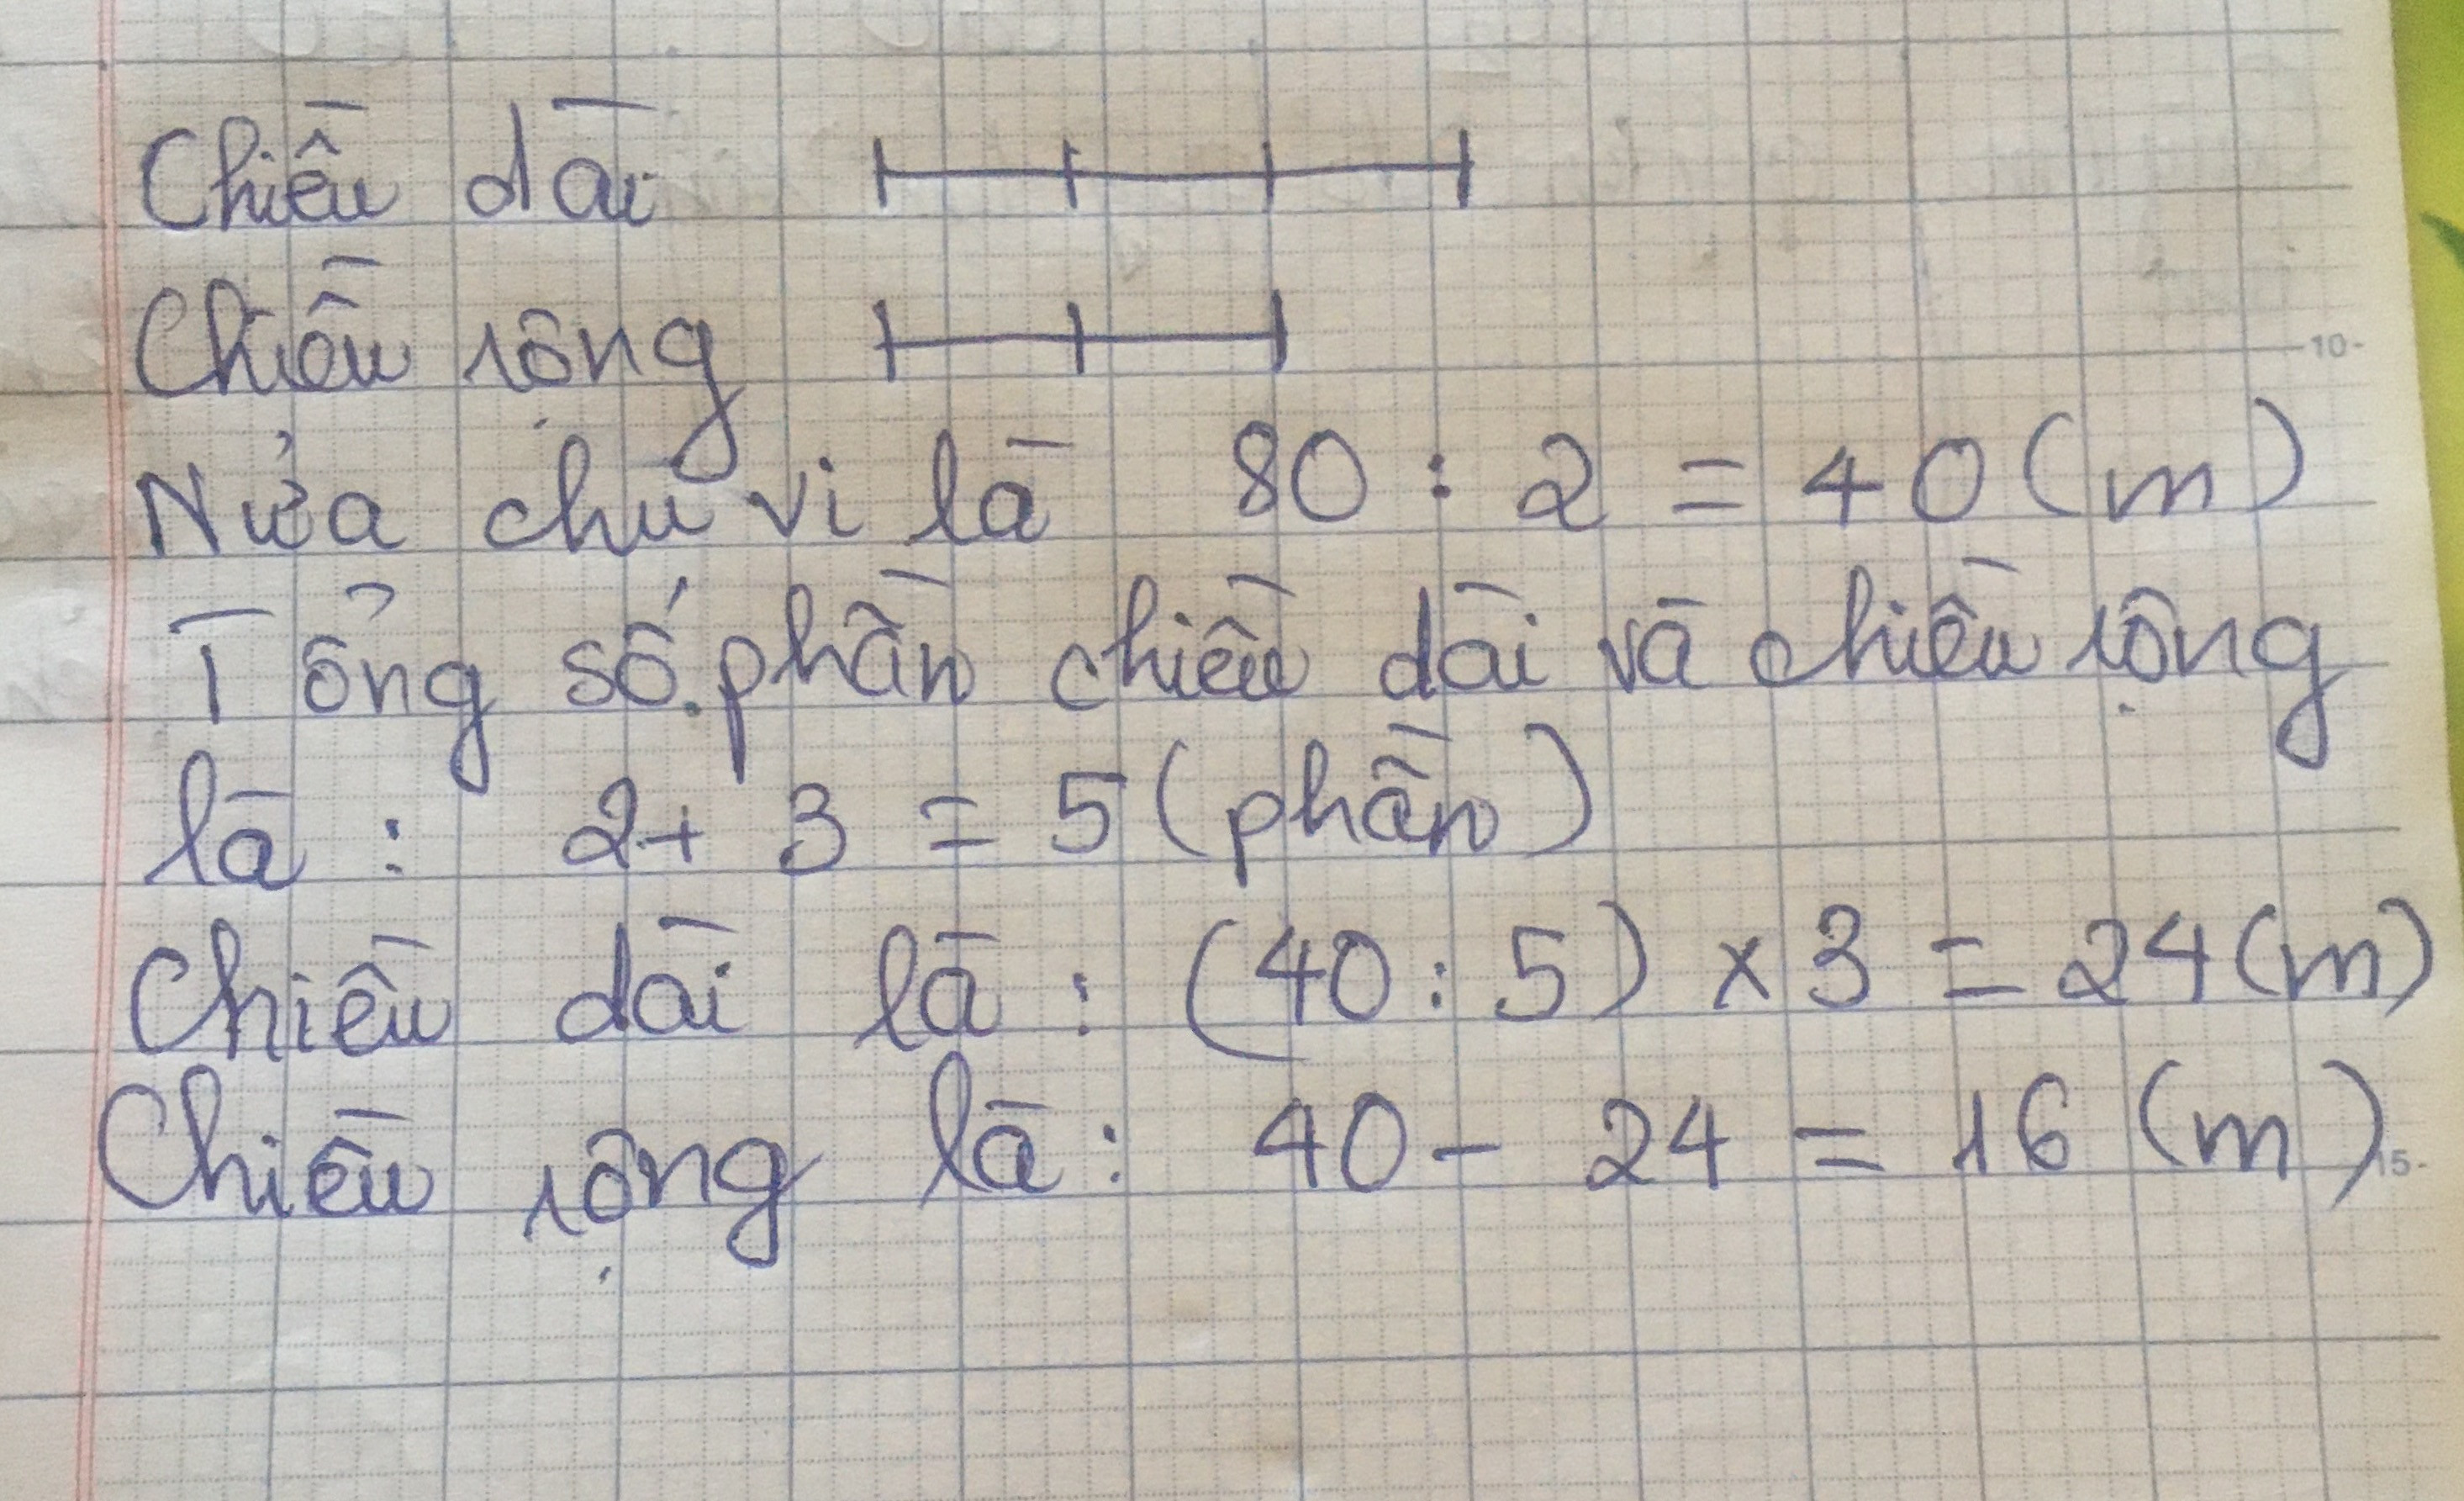 Chiều dài
Chiều rộng
10-
Nửa chu vi là 80 : 2 = 40 (m)
Tổng số phần chiều dài và chiều rộng
là : 2 + 3 = 5 (phần)
Chiều dài là : (40 : 5) x 3 = 24 (m)
Chiều rộng là : 40 - 24 = 16 (m)
15-